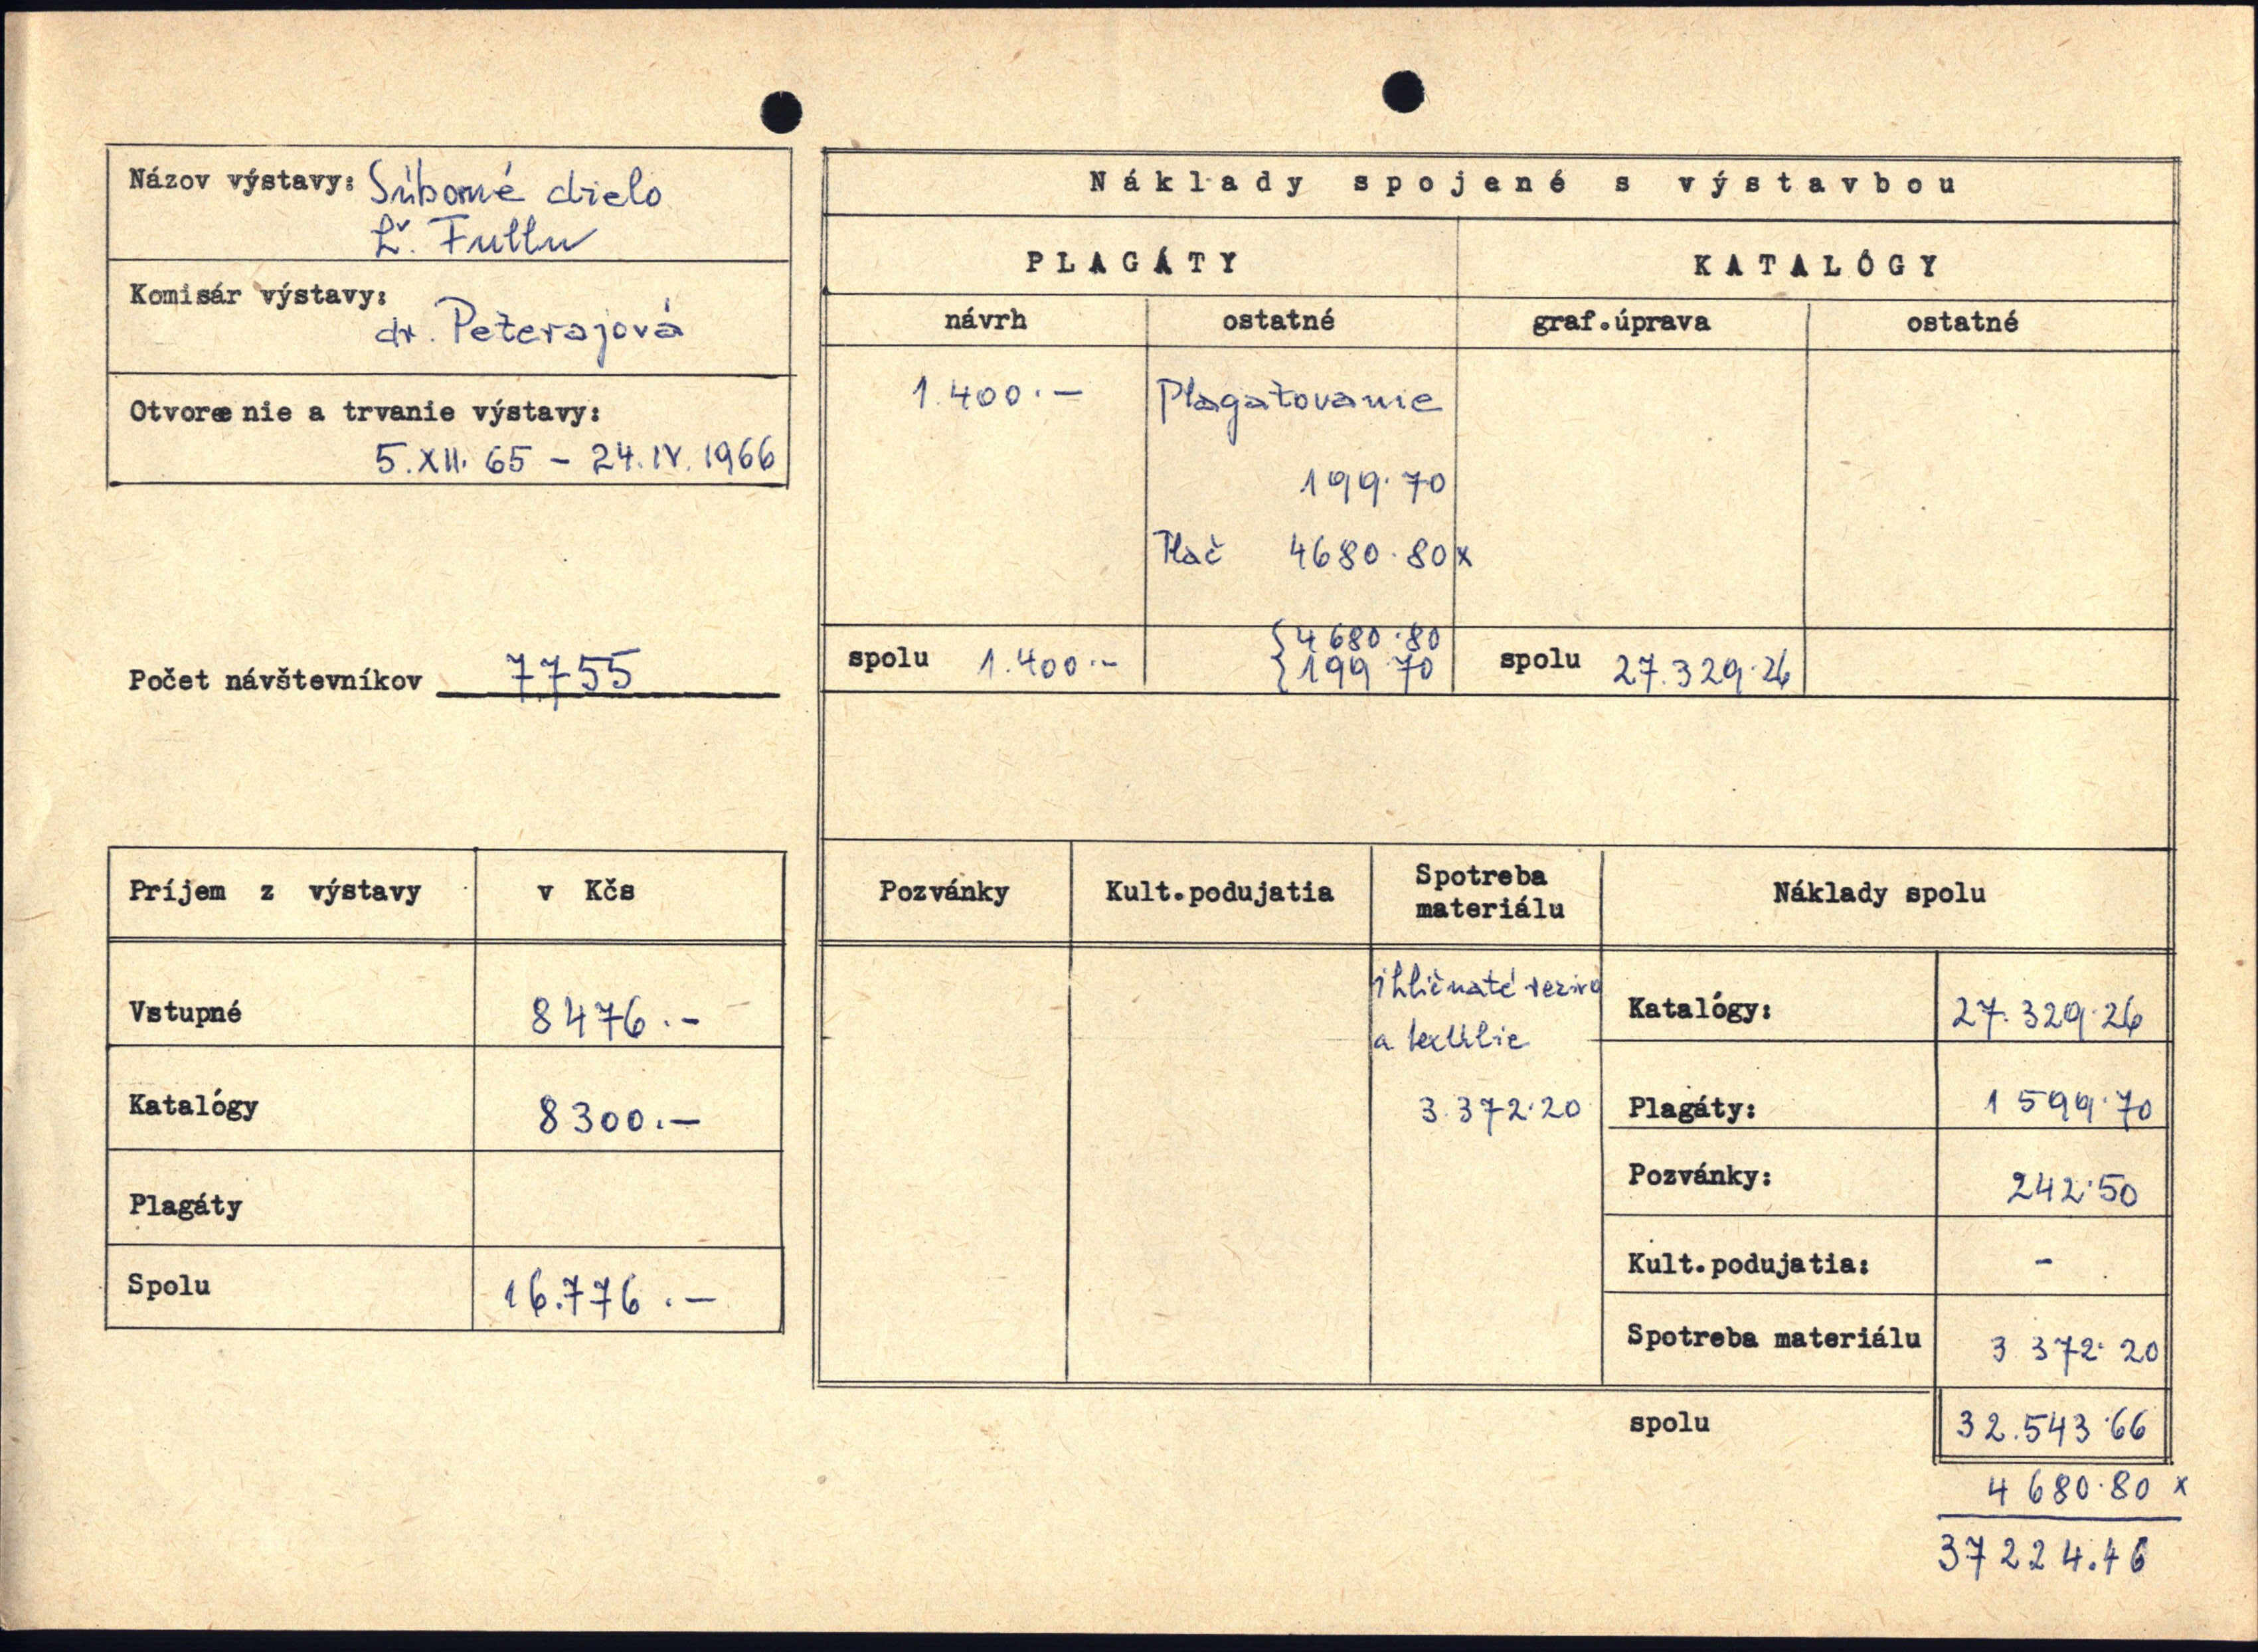 Názov výstavy: Súborné dielo
Ľ. Fullu
Komisár výstavy:
dr. Peterajová
Otvorenie a trvanie výstavy:
5.XII. 65 – 24.IV.1966
Počet návštevníkov 7755
Príjem z výstavy v Kčs
Vstupné 8476.–
Katalógy 8300.–
Plagáty
Spolu 16.776.–
Náklady spojené s výstavbou
PLAGÁTY KATALÓGY
návrh ostatné graf.úprava ostatné
1.400.– Plagátovanie
199.70
Tlač 4680.80 x
4680.80
spolu 1.400.– 199.70 spolu 27.329.26
Pozvánky Kult.podujatia Spotreba materiálu Náklady spolu
ihličnaté rezivo
a textilie
3.372.20
Katalógy: 27.329.26
Plagáty: 1 599.70
Pozvánky: 242.50
Kult.podujatia: –
Spotreba materiálu 3 372.20
spolu 32.543.66
4 680.80 x
37 224.46